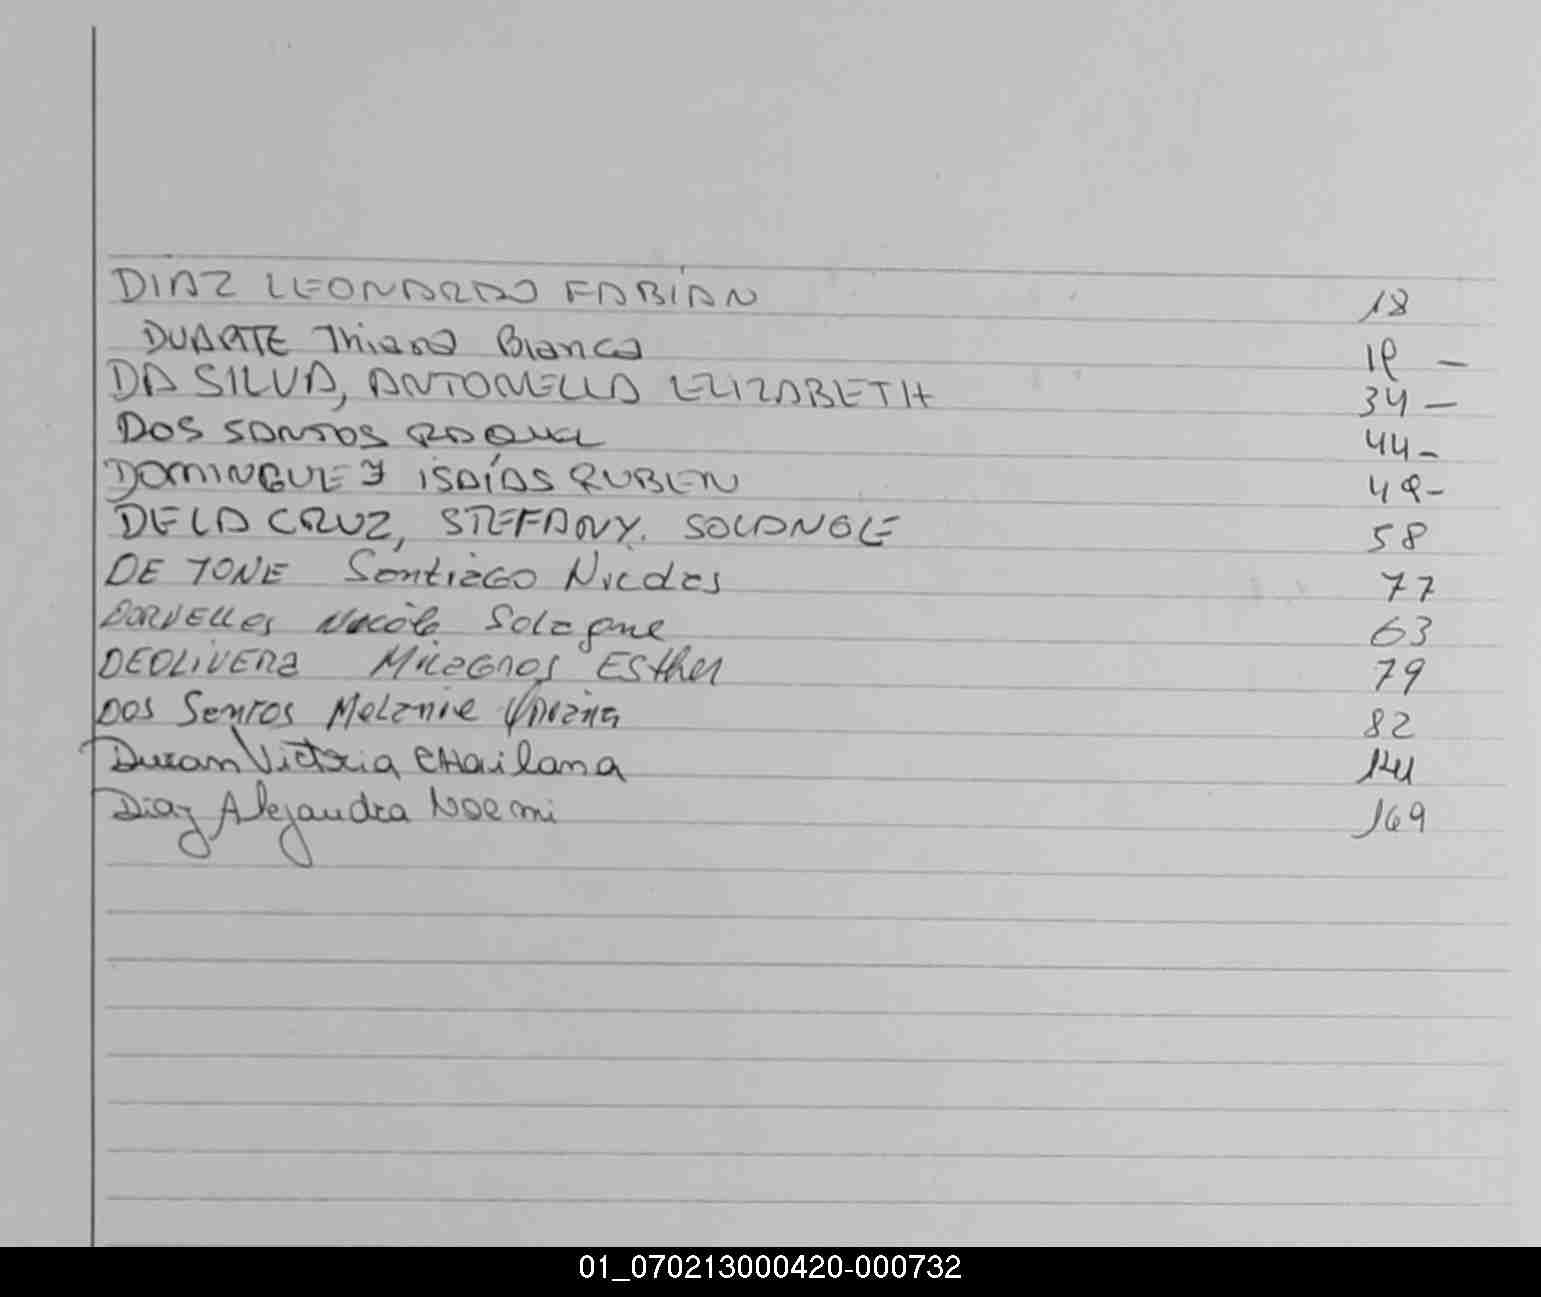 DIAZ LEONARDO FABIÁN 18
DUARTE Thiara Bianca 19 -
DA SILVA, ANTONELLA ELIZABETH 34 -
DOS SANTOS RAQUEL 44-
DOMINGUEZ ISAÍAS RUBEN 49-
DE LA CRUZ, STEFANY. SOLANGE 58
DE TONE Santiago Nicolas 77
DORNELLES Nicole Solagne 63
DEOLIVERA Milagros Esther 79
DOS Santos Melanie Viviana 82
Duran Victoria CHailana 141
Diaz Alejandra Noemi 169
01_070213000420-000732